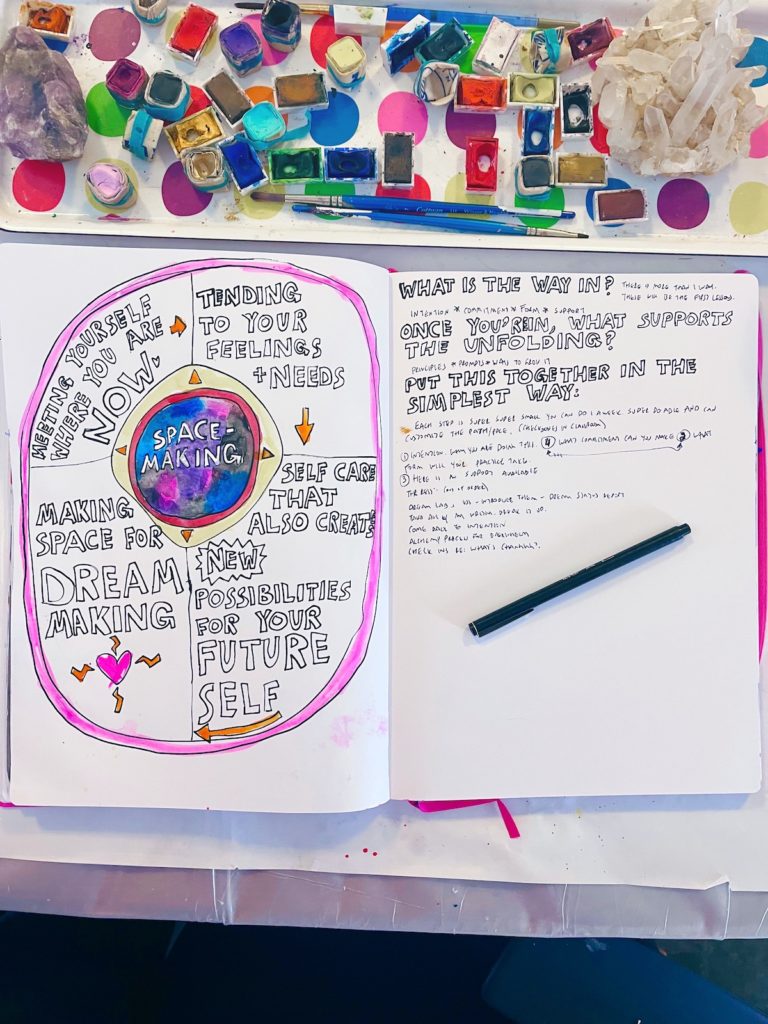 MEETING YOURSELF
WHERE YOU ARE
NOW
TENDING
TO YOUR
FEELINGS
+ NEEDS
SPACE-
MAKING
SELF CARE
THAT
ALSO CREATES
NEW
POSSIBILITIES
FOR YOUR
FUTURE
SELF
MAKING
SPACE FOR
DREAM
MAKING
WHAT IS THE WAY IN?
THERE IS MORE THAN 1 WAY.
THESE WILL BE THE FIRST LESSONS.
INTENTION * COMMITMENT * FORM * SUPPORT
ONCE YOU'RE IN, WHAT SUPPORTS
THE UNFOLDING?
PRINCIPLES * PROMPTS * WAYS TO GROW IT
PUT THIS TOGETHER IN THE
SIMPLEST WAY:
EACH STEP IS SUPER SUPER SMALL YOU CAN DO 1 A WEEK. SUPER DOABLE AND CAN
CUSTOMIZE THE PATH/PACE. (CHECKBOXES IN CLASSROOM)
① INTENTION: WHY YOU ARE DOING THIS. ④ WHAT COMMITMENT CAN YOU MAKE ② WHAT
FORM WILL YOUR PRACTICE TAKE
③ HERE IS SUPPORT AVAILABLE
THE REST: (OUT OF ORDER)
DREAM LAB, - INTRODUCE THEM - DREAM STATUS REPORT
COME BACK TO INTENTION
ALCHEMY PRACTICE FOR
CHECK INS RE: WHAT'S CHANGING?